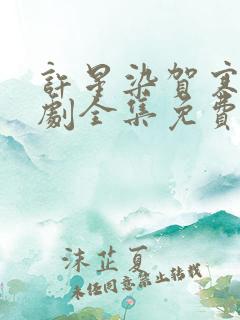 許星染賀寒
劇全集免費
沫芷夏
未经同意禁止转载